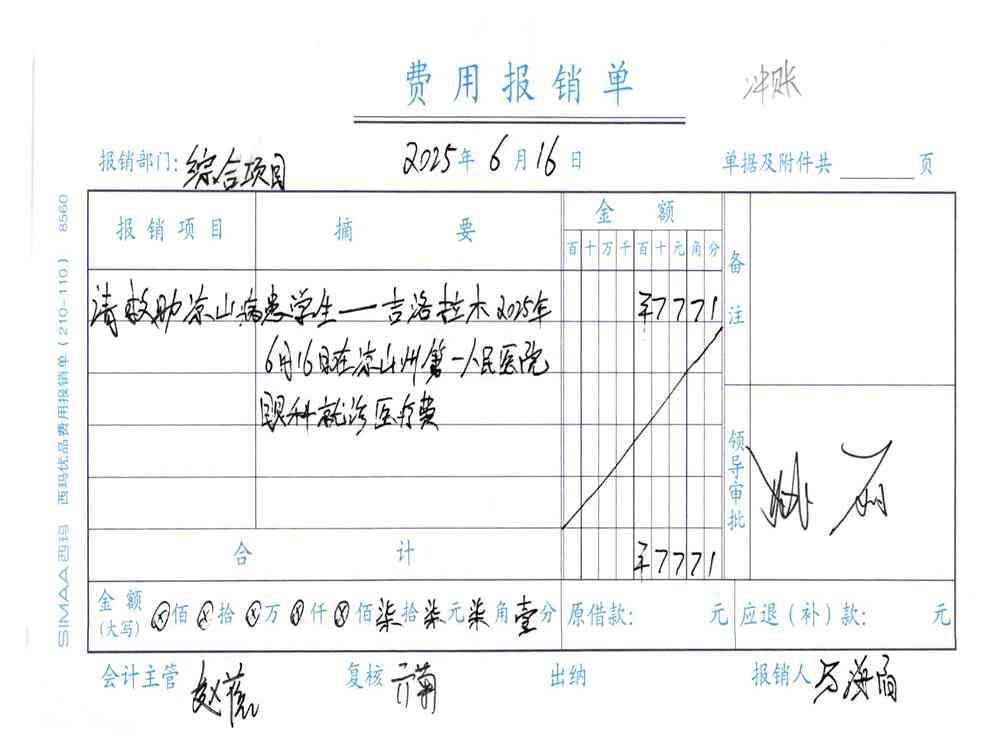 费用报销单
冲账
报销部门: 综合项目
2025年 6月16日
单据及附件共 页
报销项目
摘要
金额
百十万千百十元角分
备注
请救助凉山病患学生一吉洛拉木2025年
¥7771
6月16日在凉山州第一人民医院
眼科就诊医疗费
领导审批
合计
¥7771
金额(大写) ⊗佰⊗拾⊗万⊗仟⊗佰柒拾柒元柒角壹分
原借款: 元
应退(补)款: 元
会计主管 赵
复核
出纳
报销人 马海
SIMAA 西玛 西玛优品费用报销单(210-110) 8560